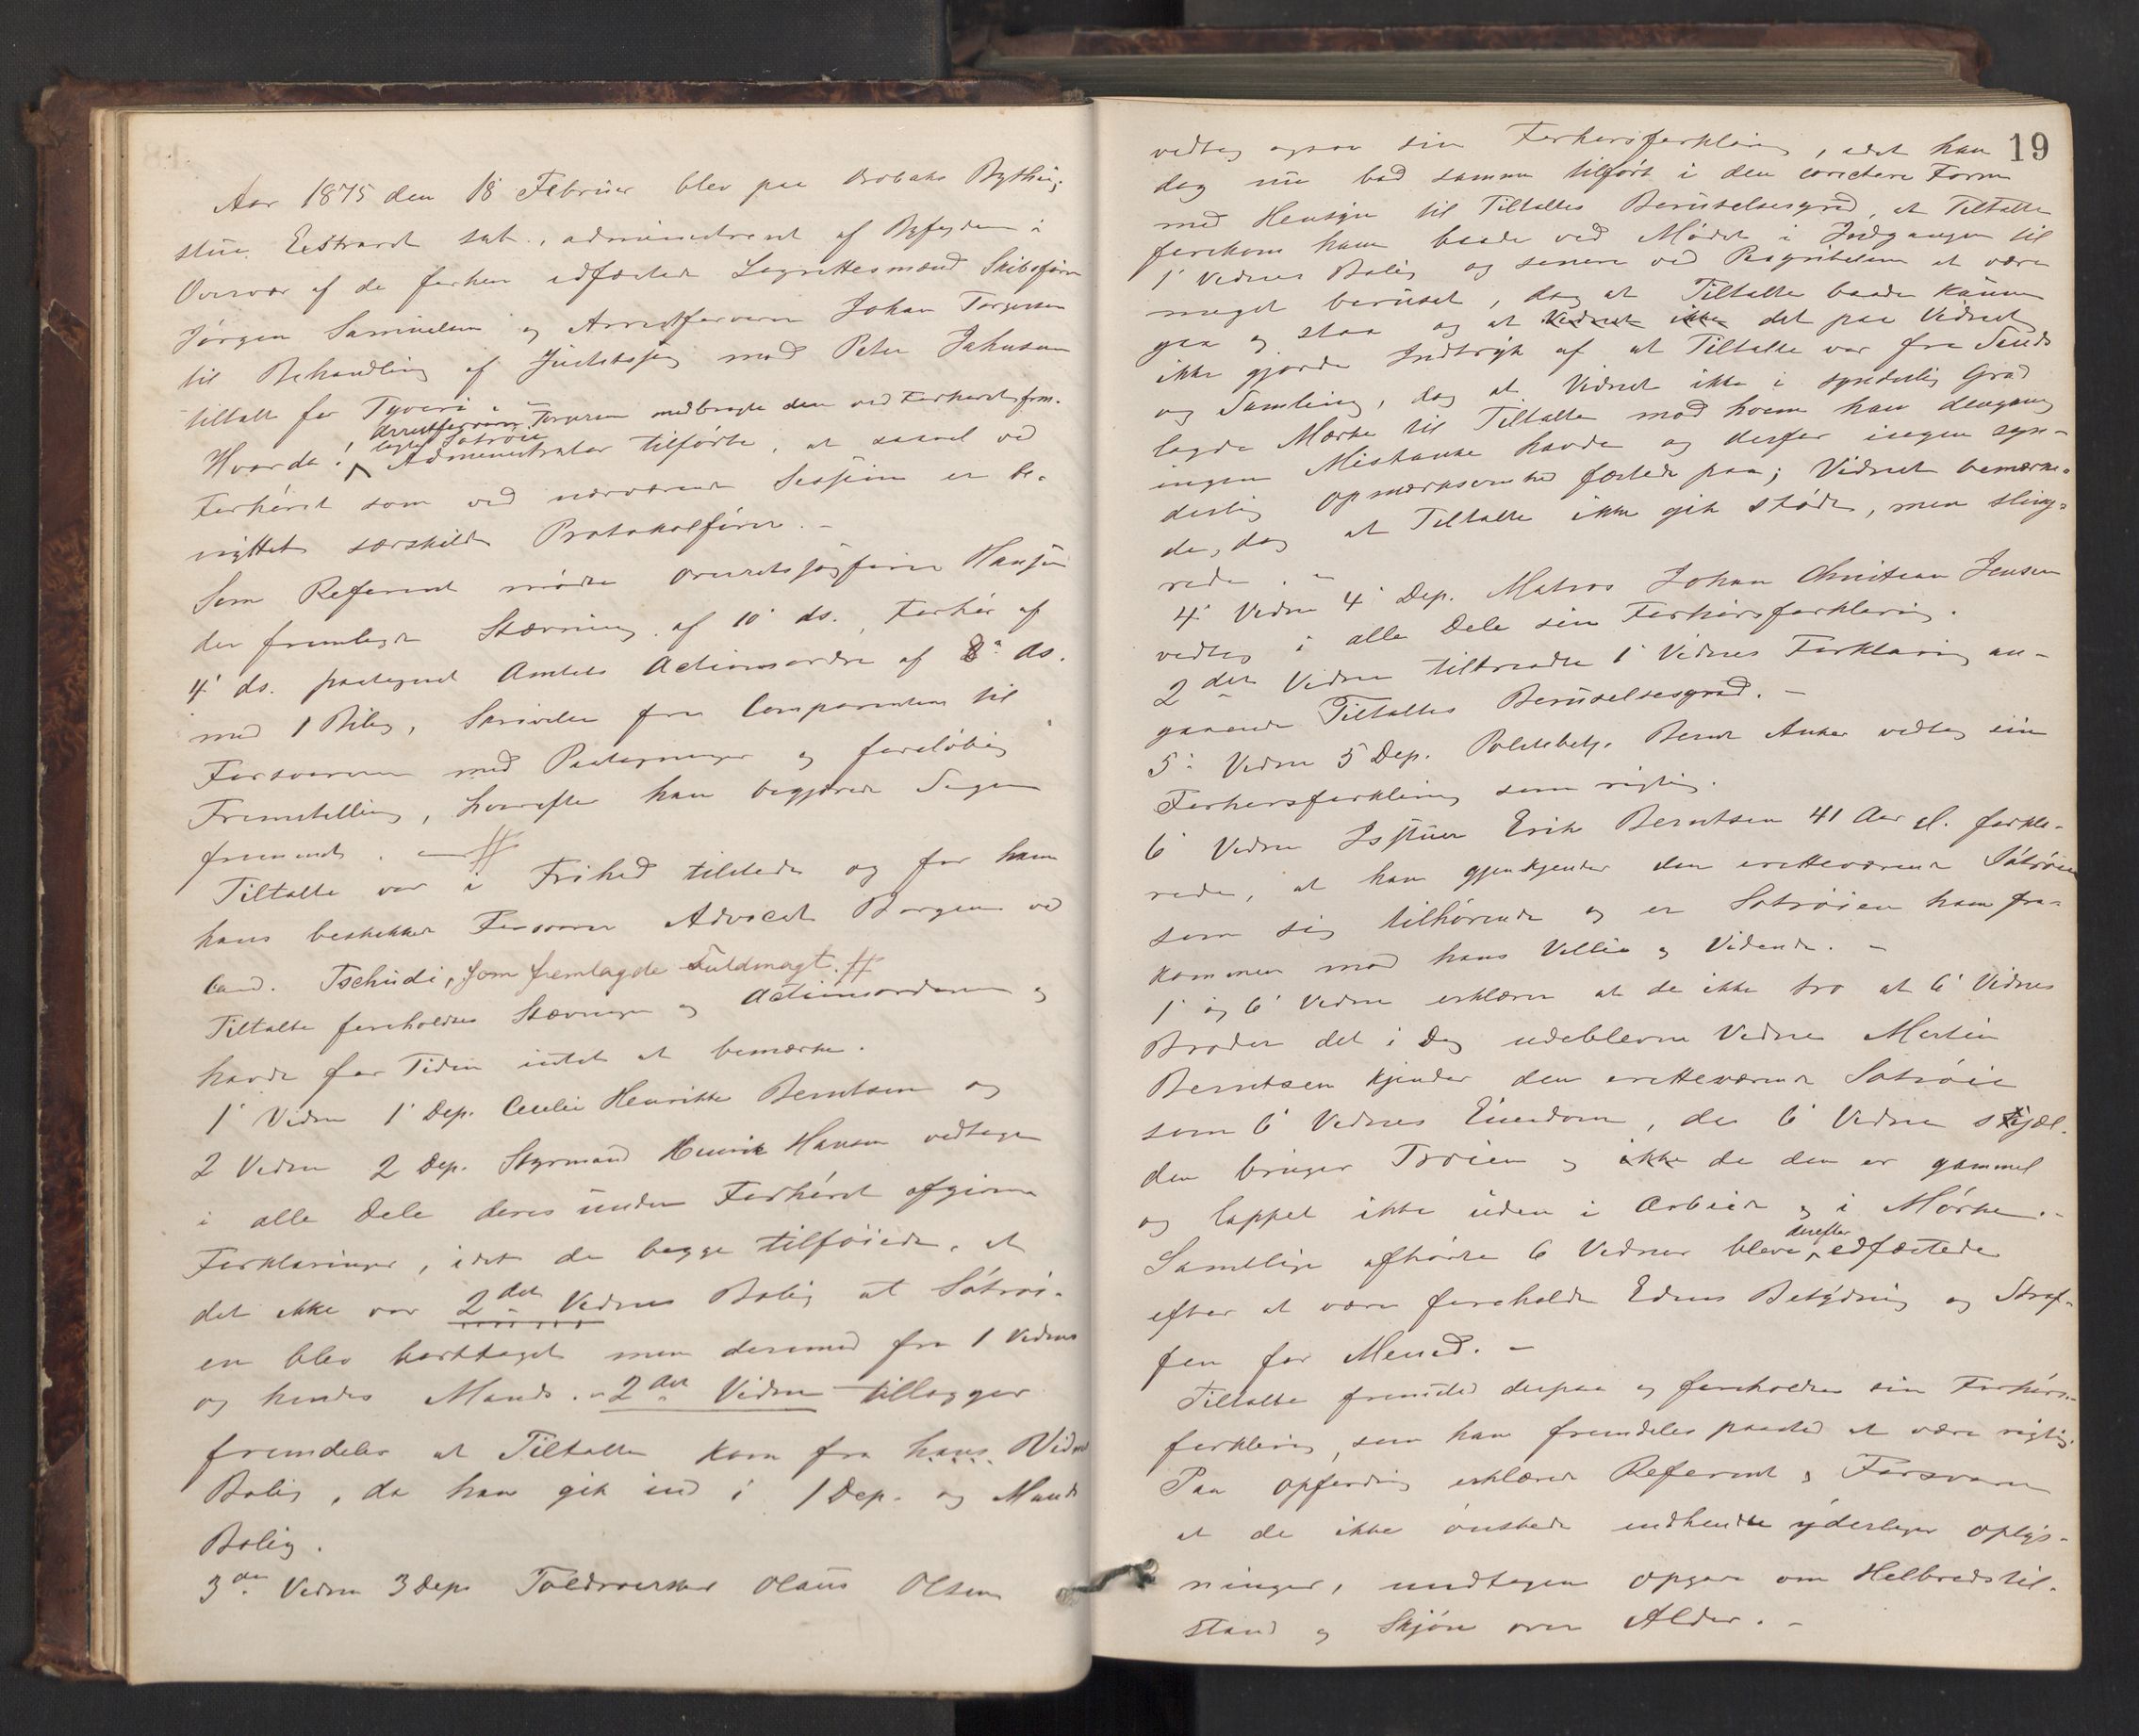 Aar 1875 den 18 Februar blev paa Drøbaks Bything-
stue Extraret sat, administreret af Byfogden i
Overvær af de forhen edfæstede Lagrettesmænd Skibsfører
Jørgen Samuelsen og Arrestforvarer Johan Torgersen
til Behandling af Justitssag mod Peter Johnsen
tiltalt for Tyveri. –
Arrestforvarer Torgersen medbragte den ved Forhørets frem-
lagte Søtrøie
Hvorda! Administrator tilførte, at saavel ved
Forhøret som ved nærværende Session er be-
nyttet særskilt Protokolfører. –
Som Referent mødte Overretssagfører Hansen
der fremlagde Stævning af 10 ds., Forhør af
4 ds. paategnet Amtets Actionsordre af 8 ds.
med 1 Bilag, Skrivelse fra Comparenten til
Forsvareren med Paategninger og foreløbig
Fremstilling, hvorefter han begjærede Sagen
fremmet. – #
Tiltalte var i Frihed tilstede og for ham
hans beskikkede Forsvarer Advocat Borgen ved
Cand. Tschudi, som fremlagde Fuldmagt. #
Tiltalte foreholdtes Stævningen og Actionsordren og
havde for Tiden intet at bemærke.
1 Vidne 1 Dep. Cecilie Henrikke Berntsen og
2 Vidne 2 Dep. Styrmand Henrik Hansen vedtoge
i alle Dele deres under Forhøret afgivne
Forklaringer, idet de begge tilføiede, at
det ikke var 2det Vidnes Bolig at Søtrøi-
en blev borttaget men derimod fra 1 Vidnes
og hendes Mands. – 2det Vidne tillægger
fremdeles at Tiltalte kom fra hans Vidnes
Bolig, da han gik ind i 1 Dep. og Mands
Bolig.
3die Vidne 3 Dep. Toldroerskar Olaus Olsen
19
vedtog ogsaa sin Forhørsforklaring, idet han
dog nu bad samme tilført i den correctere Form
med Hensyn til Tiltaltes Beruselsesgrad, at Tiltalte
forekom ham baade ved Mødet i Indgangen til
1 Vidnes Bolig og senere ved Paagribelsen at være
meget beruset, dog at Tiltalte baade kunne
gaa og staa og at Vidnet ikke det paa Vidnet
ikke gjorde Indtryk af at Tiltalte var fra Sands
og Samling, dog at Vidnet ikke i synderlig Grad
lagde Mærke til Tiltalte mod hvem han dengang
ingen Mistanke havde og derfor ingen syn-
derlig Opmærksomhed fæstede paa; Vidnet bemærke-
de, dog at Tiltalte ikke gik stødt, men sling-
rede. –
4 Vidne 4 Dep. Matros Johan Christian Jensen
vedtog i alle Dele sin Forhørsforklaring.
2det Vidne tiltraadte 1 Vidnes Forklaring an-
gaaende Tiltaltes Beruselsesgrad. –
5 Vidne 5 Dep. Politibetj. Bernt Anker vedtog sin
Forhørsforklaring som rigtig.
6 Vidne Erik Berntsen 41 Aar gl. forkla-
rede, at han gjenkjender den iretteværende Søtrøie
som sig tilhørende og er Søtrøien ham fra-
kommen mod hans Villie og Vidende. –
1 og 6 Vidne erklærer at de ikke tro at 6 Vidnes
Broder det i Dag udeblevne Vidne Martin
Berntsen kjender den iretteværende Søtrøie
som 6 Vidnes Eiendom, da 6 Vidne sjæl-
den bruger Trøien og ikke da den er gammel
og lappet ikke uden i Arbeide og i Mørke. –
Samtlige afhørte 6 Vidner bleve derefter edfæstede
efter at være foreholdt Edens Betydning og Straf-
fen for Mened. –
Tiltalte fremstod derpaa og foreholdtes sin Forhørs-
forklaring, som han fremdeles paastod at være rigtig.
Paa Opfordring erklærede Referent og Forsvarer
at de ikke ønskede indhentet yderligere Oplys-
ninger, undtagen Opgave om Helbredstil-
stand og Skjøn over Alder. –